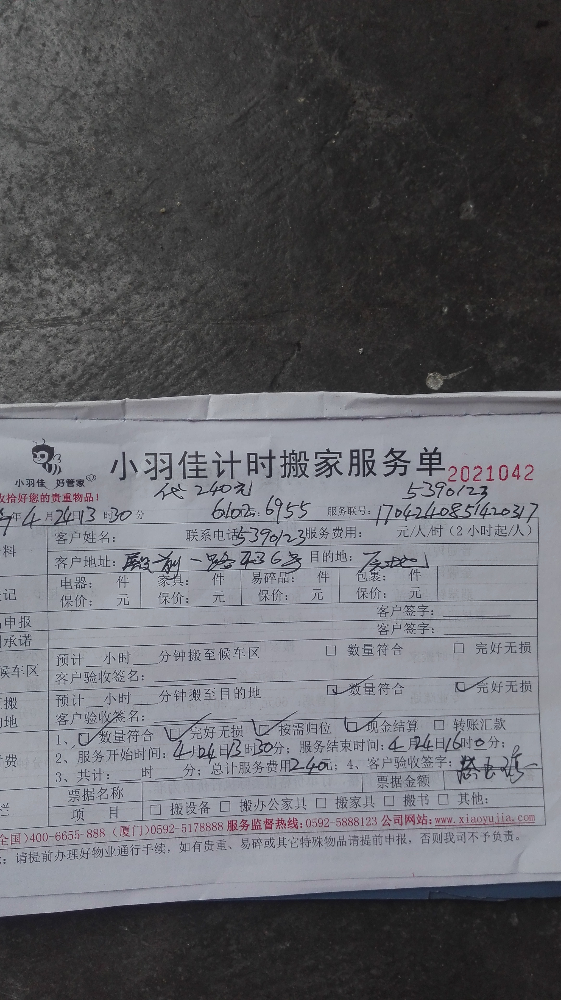 小羽佳 好管家
小羽佳计时搬家服务单 2021042
收拾好您的贵重物品!
代 240元 5390123
年 4 月 24 日 13 时 30 分 6102: 6955 服务联号: 1704240851420317
客户姓名: 联系电话 5390123 服务费用: 元/人/时 (2小时起/人)
客户地址: 殿前一路436号 目的地:
电器: 件 家具: 件 易碎品: 件 包装: 件
保价: 元 保价: 元 保价: 元 保价: 元
申报 客户签字:
承诺 客户签字:
候车区 预计 小时 分钟搬至候车区 □ 数量符合 □ 完好无损
客户验收签名:
预计 小时 分钟搬至目的地 数量符合 完好无损
客户验收签名:
1、 数量符合 完好无损 按需归位 现金结算 □ 转账汇款
2、服务开始时间: 4月24日13时30分; 服务结束时间: 4月24日16时0分;
3、共计: 时 分; 总计服务费用240元; 4、客户验收签字:
票据名称 票据金额
项 目 □ 搬设备 □ 搬办公家具 □ 搬家具 □ 搬书 □ 其他:
全国)400-6655-888 (厦门)0592-5178888 服务监督热线:0592-5888123 公司网站:www.xiaoyujia.com
: 请提前办理好物业通行手续, 如有贵重、易碎或其它特殊物品请提前申报, 否则我司不予负责。